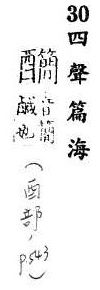 30四聲篇海
音簡
鹹也
(酉部, p543)